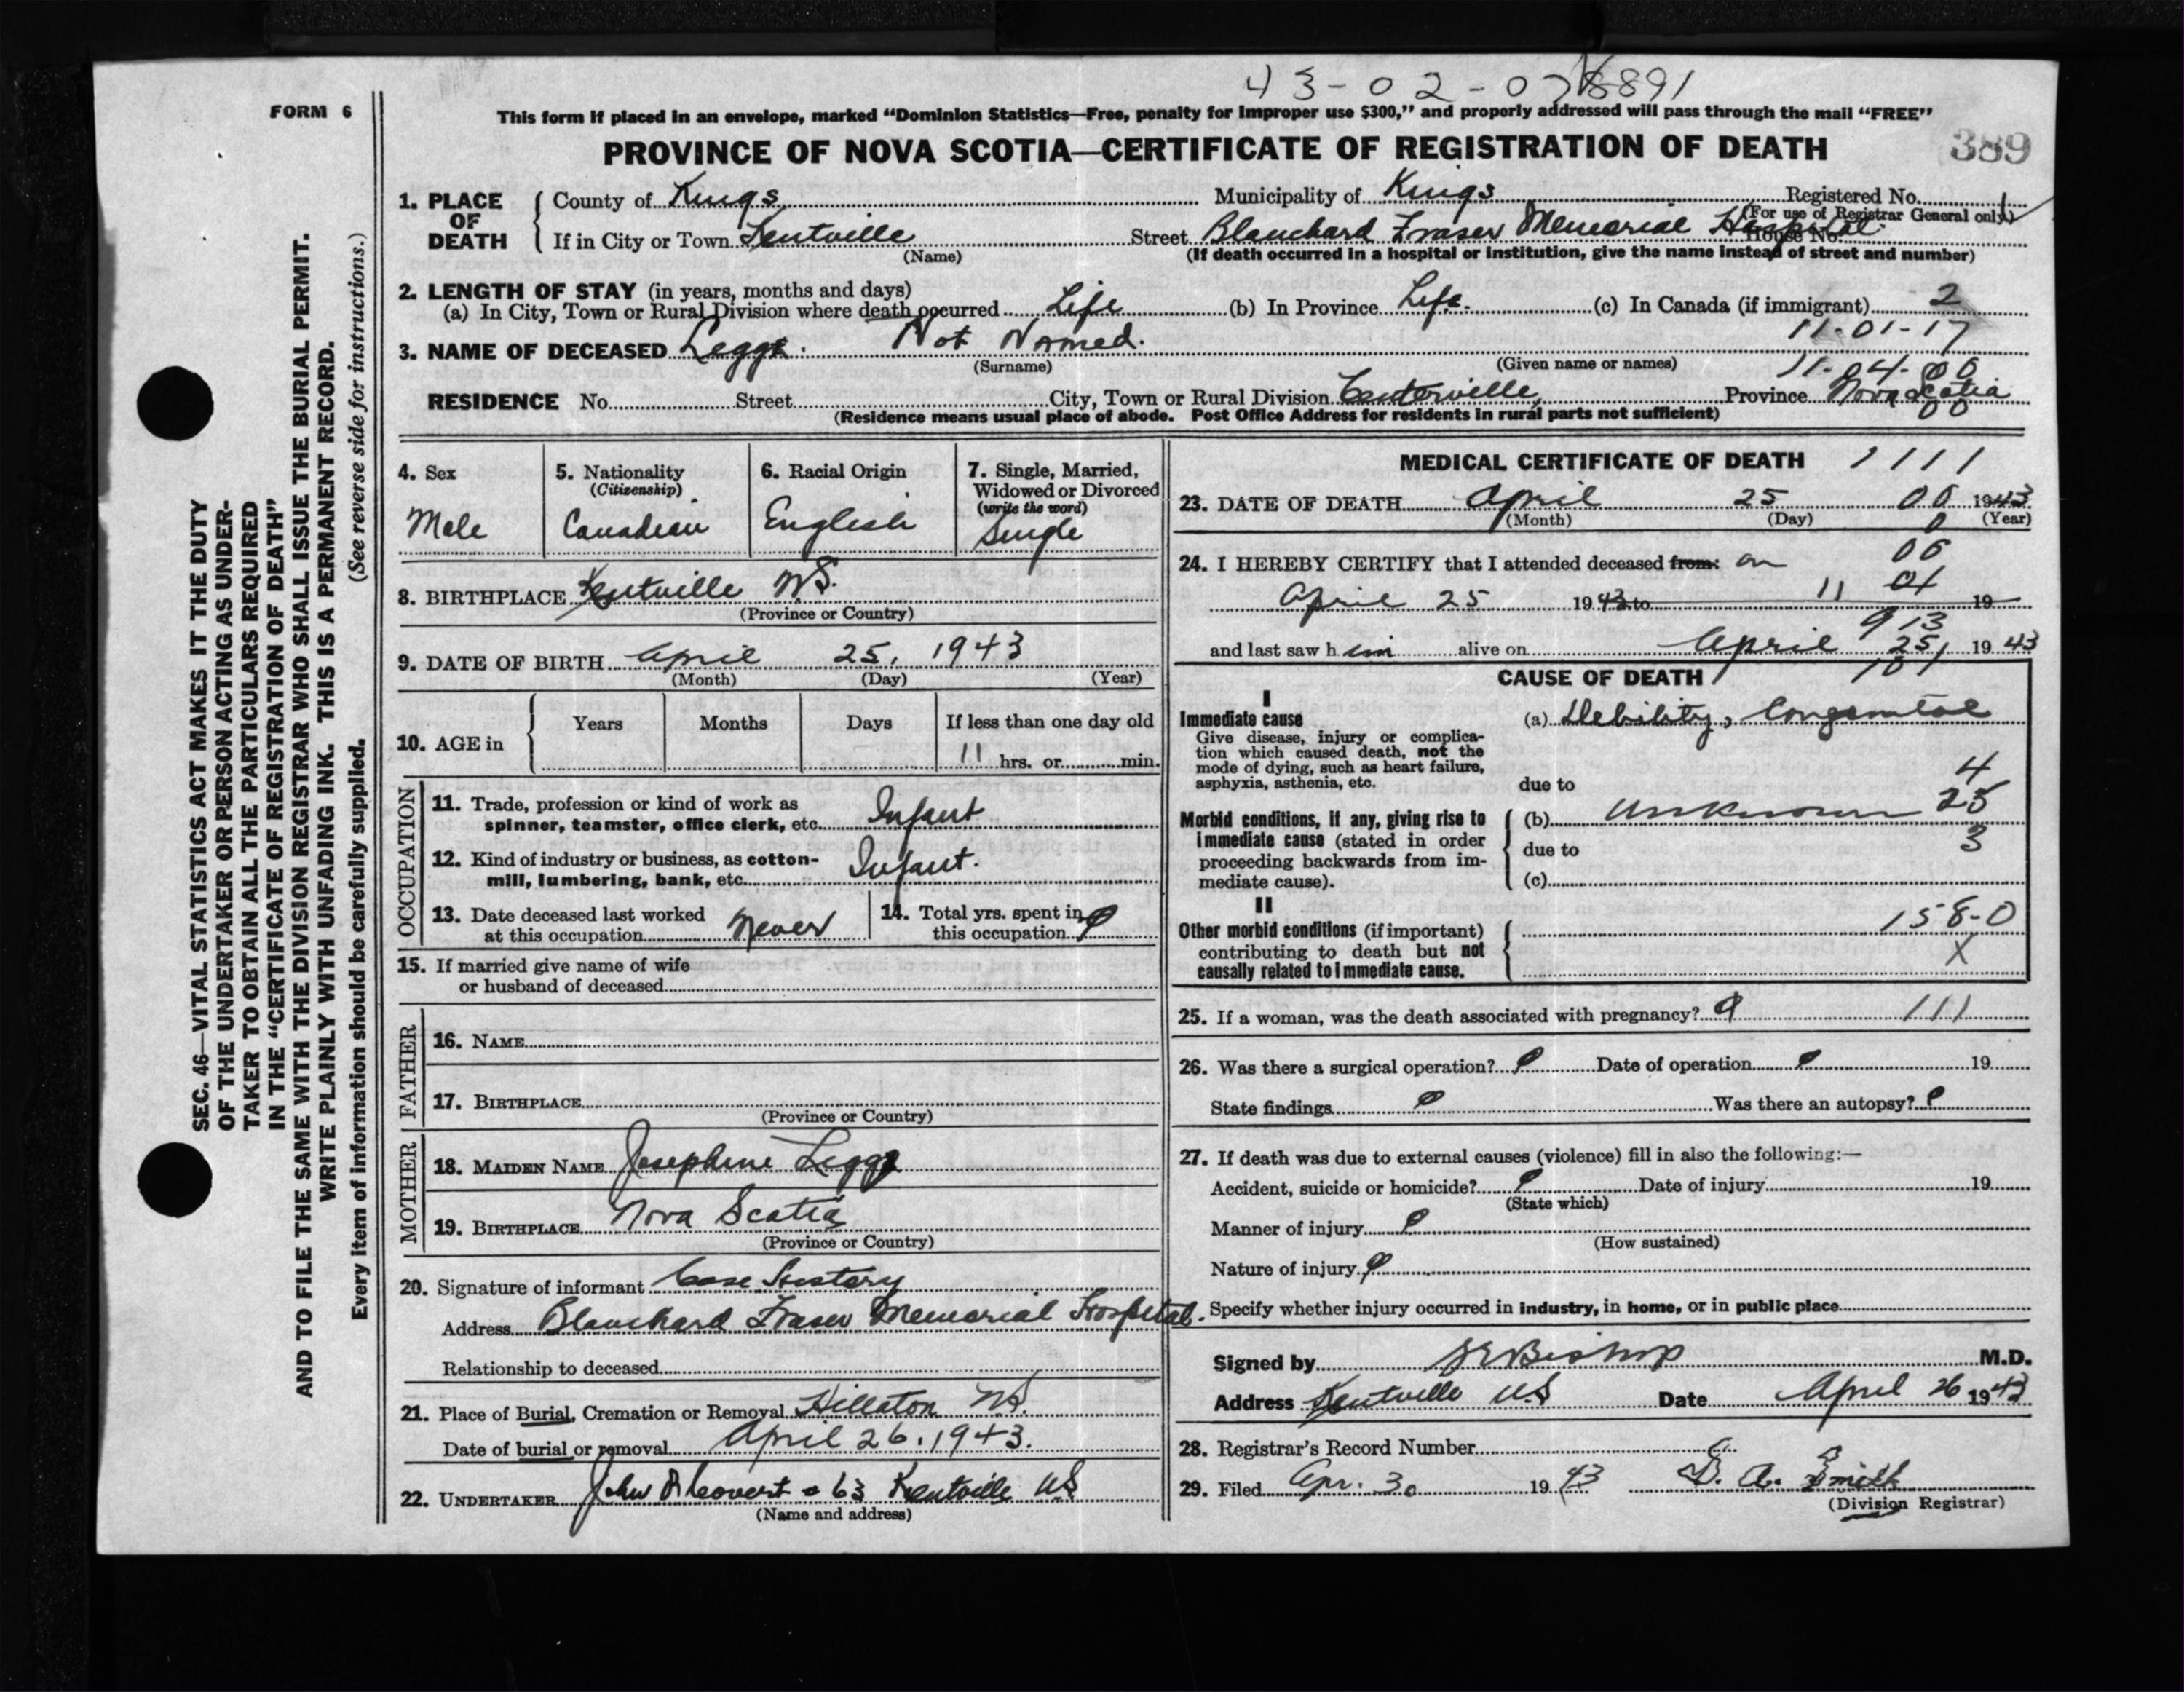 43-02-07 8891
FORM 6
This form if placed in an envelope, marked “Dominion Statistics—Free, penalty for improper use $300,” and properly addressed will pass through the mail “FREE”
PROVINCE OF NOVA SCOTIA—CERTIFICATE OF REGISTRATION OF DEATH
389
1. PLACE OF DEATH
County of Kings Municipality of Kings Registered No.
(For use of Registrar General only)
If in City or Town Kentville Street Blanchard Fraser Memorial Hospital House No.
(Name) (If death occurred in a hospital or institution, give the name instead of street and number)
2. LENGTH OF STAY (in years, months and days)
(a) In City, Town or Rural Division where death occurred Life (b) In Province Life. (c) In Canada (if immigrant) 2
11-01-17
3. NAME OF DECEASED Legge. Not Named.
(Surname) (Given name or names) 11-04-00
RESIDENCE No. Street City, Town or Rural Division Centerville, Province Nova Scotia
(Residence means usual place of abode. Post Office Address for residents in rural parts not sufficient) 00
SEC. 46—VITAL STATISTICS ACT MAKES IT THE DUTY
OF THE UNDERTAKER OR PERSON ACTING AS UNDER-
TAKER TO OBTAIN ALL THE PARTICULARS REQUIRED
IN THE “CERTIFICATE OF REGISTRATION OF DEATH”
AND TO FILE THE SAME WITH THE DIVISION REGISTRAR WHO SHALL ISSUE THE BURIAL PERMIT.
WRITE PLAINLY WITH UNFADING INK. THIS IS A PERMANENT RECORD.
Every item of information should be carefully supplied. (See reverse side for instructions.)
4. Sex
Male
5. Nationality
(Citizenship)
Canadian
6. Racial Origin
English
7. Single, Married,
Widowed or Divorced
(write the word)
Single
8. BIRTHPLACE Kentville N.S.
(Province or Country)
9. DATE OF BIRTH April 25, 1943
(Month) (Day) (Year)
10. AGE in
Years Months Days If less than one day old
11 hrs. or min.
OCCUPATION
11. Trade, profession or kind of work as
spinner, teamster, office clerk, etc. Infant
12. Kind of industry or business, as cotton-
mill, lumbering, bank, etc. Infant.
13. Date deceased last worked
at this occupation Never
14. Total yrs. spent in
this occupation
15. If married give name of wife
or husband of deceased
FATHER
16. NAME
17. BIRTHPLACE
(Province or Country)
MOTHER
18. MAIDEN NAME Josephine Legge
19. BIRTHPLACE Nova Scotia
(Province or Country)
20. Signature of informant Case History
Address Blanchard Fraser Memorial Hospital.
Relationship to deceased
21. Place of Burial, Cremation or Removal Hillaton N.S.
Date of burial or removal April 26, 1943.
22. UNDERTAKER John 63 Kentville NS
(Name and address)
MEDICAL CERTIFICATE OF DEATH 1111
23. DATE OF DEATH April 25 00 1943
(Month) (Day) 0 (Year)
24. I HEREBY CERTIFY that I attended deceased from: on 06
April 25 1943 to 11 01 19
913
and last saw him alive on April 25, 1943
CAUSE OF DEATH 101
I
Immediate cause
Give disease, injury or complica-
tion which caused death, not the
mode of dying, such as heart failure,
asphyxia, asthenia, etc.
(a) Debility, Congenital
4
due to
Morbid conditions, if any, giving rise to
immediate cause (stated in order
proceeding backwards from im-
mediate cause).
(b) Unknown 25
due to 3
(c)
II
Other morbid conditions (if important)
contributing to death but not
causally related to immediate cause.
158-0
X
25. If a woman, was the death associated with pregnancy? 111
26. Was there a surgical operation? Date of operation 19
State findings Was there an autopsy?
27. If death was due to external causes (violence) fill in also the following:—
Accident, suicide or homicide? Date of injury 19
(State which)
Manner of injury
(How sustained)
Nature of injury
Specify whether injury occurred in industry, in home, or in public place
Signed by Bishop M.D.
Address Kentville N.S Date April 26 1943
28. Registrar's Record Number
29. Filed Apr. 30 1943 A. Smith
(Division Registrar)